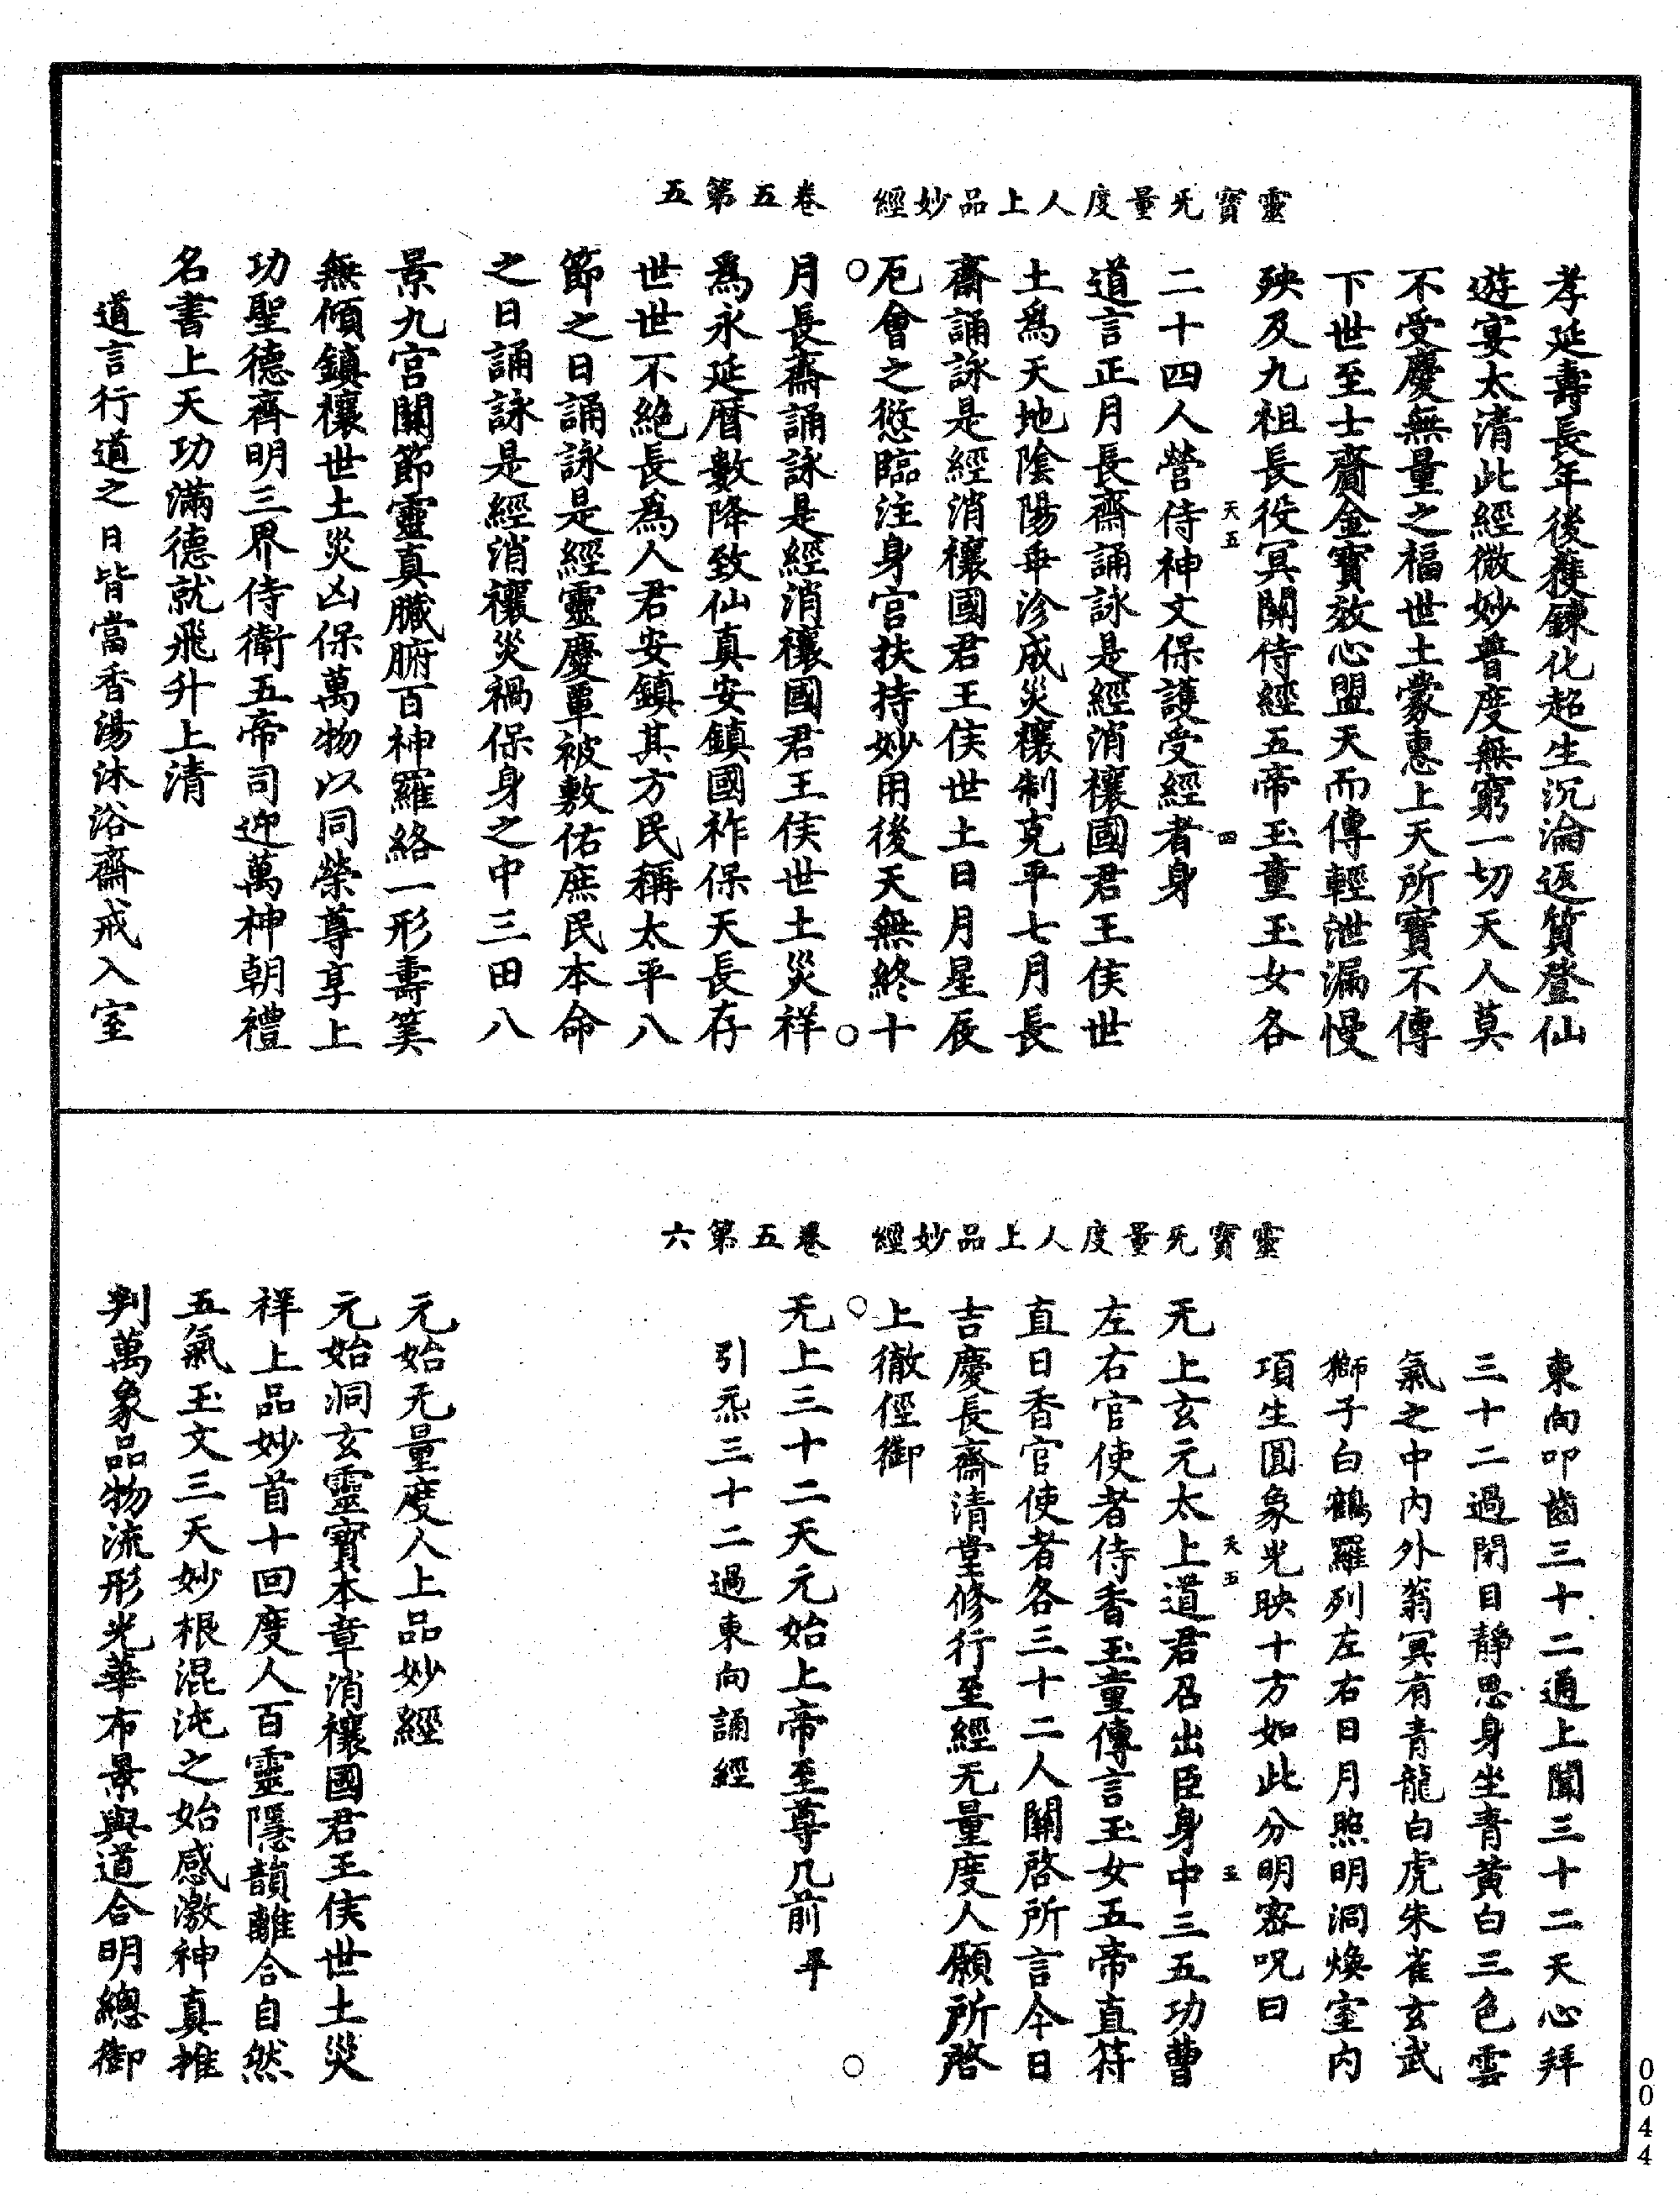 靈寶无量度人上品妙經　卷五第五
孝延壽長年後獲鍊化超生沉淪返質登仙
遊宴太清此經微妙普度無窮一切天人莫
不受慶無量之福世土蒙惠上天所寶不傳
下世至士齎金寶效心盟天而傳輕泄漏慢
殃及九祖長役冥關侍經五帝玉童玉女各
天五　四
二十四人營侍神文保護受經者身
道言正月長齋誦詠是經消禳國君王侯世
土為天地陰陽乖沴成災禳制克平七月長
齋誦詠是經消禳國君王侯世土日月星辰
厄會之愆臨注身宮扶持妙用後天無終十
月長齋誦詠是經消禳國君王侯世土災祥
為永延曆數降致仙真安鎮國祚保天長存
世世不絕長為人君安鎮其方民稱太平八
節之日誦詠是經靈慶覃被敷佑庶民本命
之日誦詠是經消禳災禍保身之中三田八
景九宮關節靈真臟腑百神羅絡一形壽筭
無傾鎮禳世土災凶保萬物以同榮尊享上
功聖德齊明三界侍衛五帝司迎萬神朝禮
名書上天功滿德就飛升上清
道言行道之日皆當香湯沐浴齋戒入室
靈寶无量度人上品妙經　卷五第六
東向叩齒三十二通上聞三十二天心拜
三十二過閉目靜思身坐青黃白三色雲
氣之中內外蓊冥有青龍白虎朱雀玄武
獅子白鶴羅列左右日月照明洞煥室內
項生圓象光映十方如此分明密咒曰
天五　五
无上玄元太上道君召出臣身中三五功曹
左右官使者侍香玉童傳言玉女五帝直符
直日香官使者各三十二人關啓所言今日
吉慶長齋清堂修行至經无量度人願所啓
上徹徑御
无上三十二天元始上帝至尊几前 平
引炁三十二過東向誦經
元始无量度人上品妙經
元始洞玄靈寶本章消禳國君王侯世土災
祥上品妙首十回度人百靈隱韻離合自然
五氣玉文三天妙根混沌之始感激神真推
判萬象品物流形光華布景與道合明總御
0044